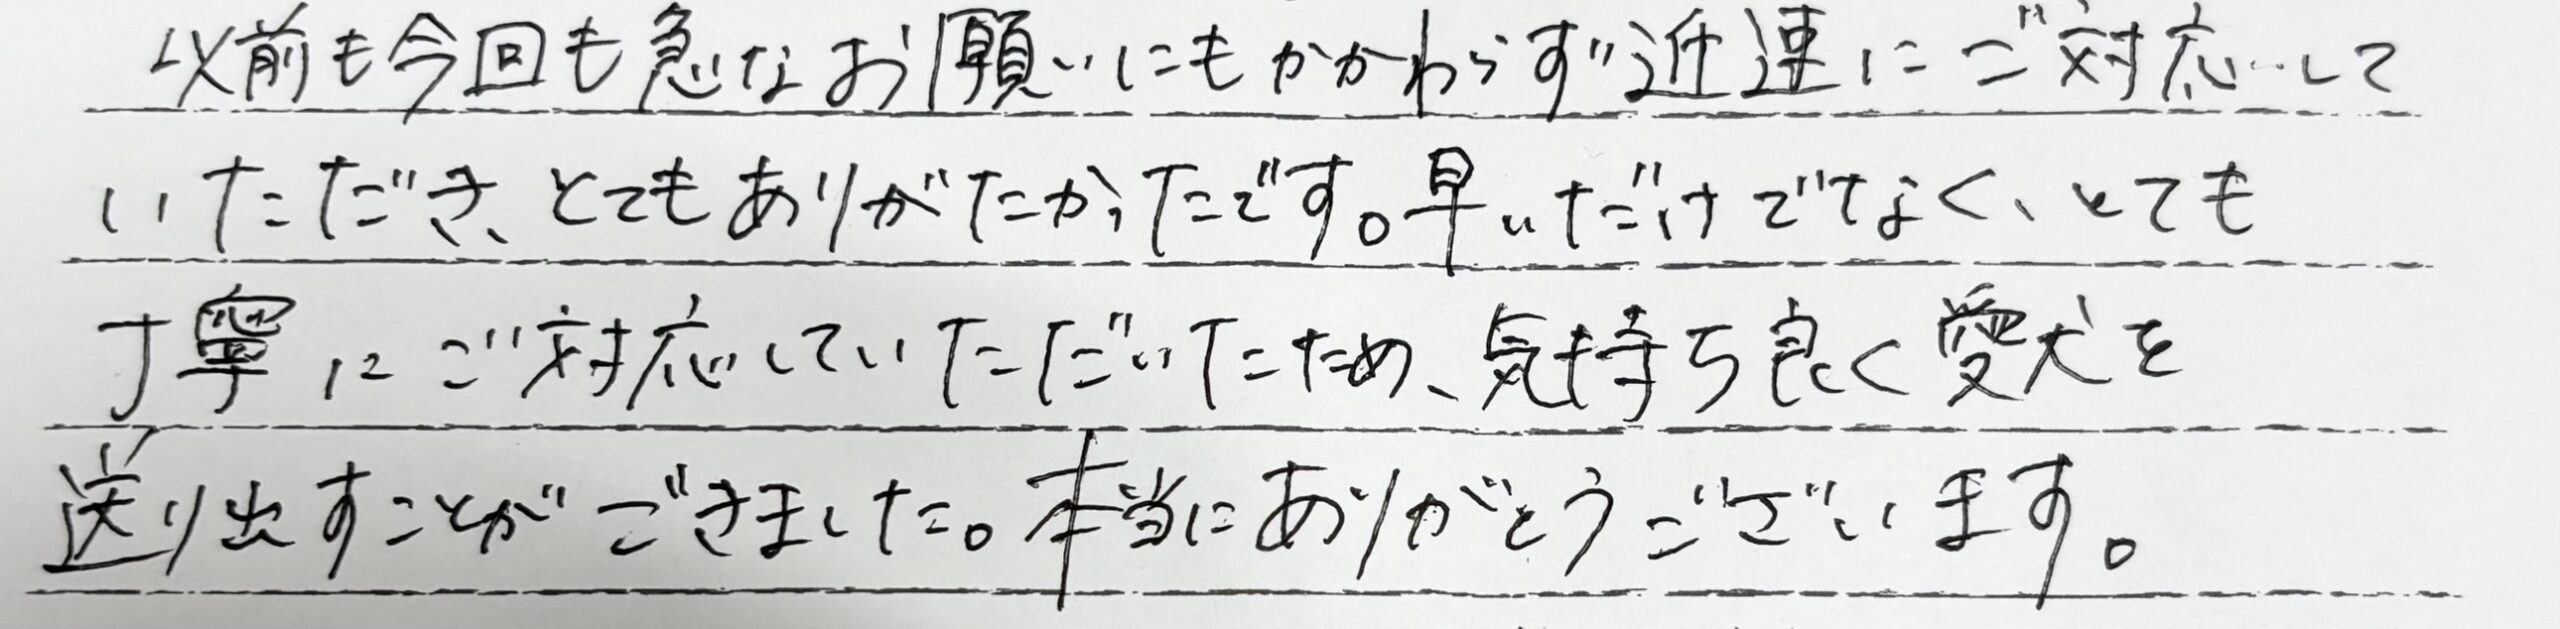 以前も今回も急なお願いにもかかわらず迅速にご対応して
いただき、とてもありがたかったです。早いだけでなく、とても
丁寧にご対応していただいたため、気持ち良く愛犬を
送り出すことができました。本当にありがとうございます。